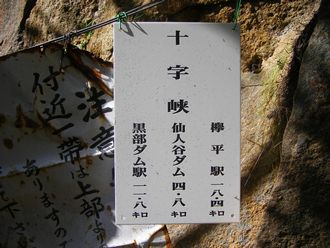 十字峡
欅平駅 一八・四キロ
仙人谷ダム 四・八キロ
黒部ダム駅 一一・八キロ
注意
付近一帯は上部より
ありますので
下さい